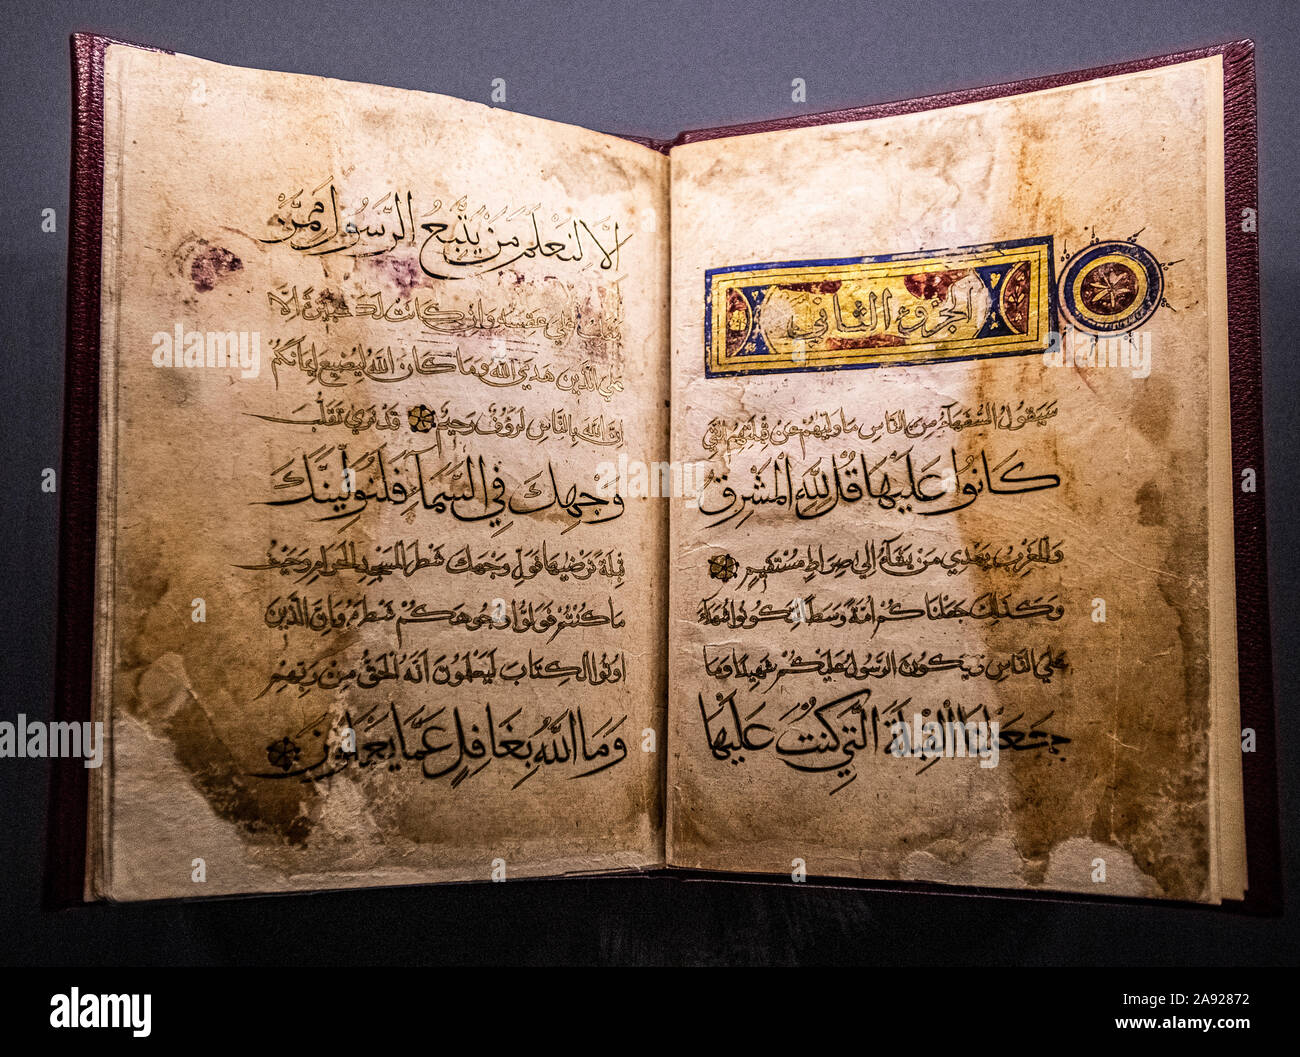 الجزء الثاني
سيقول السفهاء من الناس ما وليهم عن قبلتهم التي
كَانُوا عَلَيْهَا قُلْ لِلَّهِ الْمَشْرِقُ
والمغرب يهدي من يشاء إلى صراط مستقيم
وكذلك جعلناكم أمة وسطا لتكونوا شهداء
على الناس ويكون الرسول عليكم شهيدا وما
جَعَلْنَا الْقِبْلَةَ الَّتِي كُنْتَ عَلَيْهَا
إِلَّا لِنَعْلَمَ مَنْ يَتَّبِعُ الرَّسُولَ مِمَّنْ
ينقلب على عقبيه وإن كانت لكبيرة إلا
على الذين هدى الله وما كان الله ليضيع إيمانكم
إن الله بالناس لرؤف رحيم قد نرى تقلب
وَجْهِكَ فِي السَّمَآءِ فَلَنُوَلِّيَنَّكَ
قبلة ترضيها فول وجهك شطر المسجد الحرام وحيث
ما كنتم فولوا وجوهكم شطره وإن الذين
اوتوا الكتاب ليعلمون أنه الحق من ربهم
وَمَا اللَّهُ بِغَافِلٍ عَمَّا يَعْمَلُونَ
alamy
Image ID: 2A92872
www.alamy.com